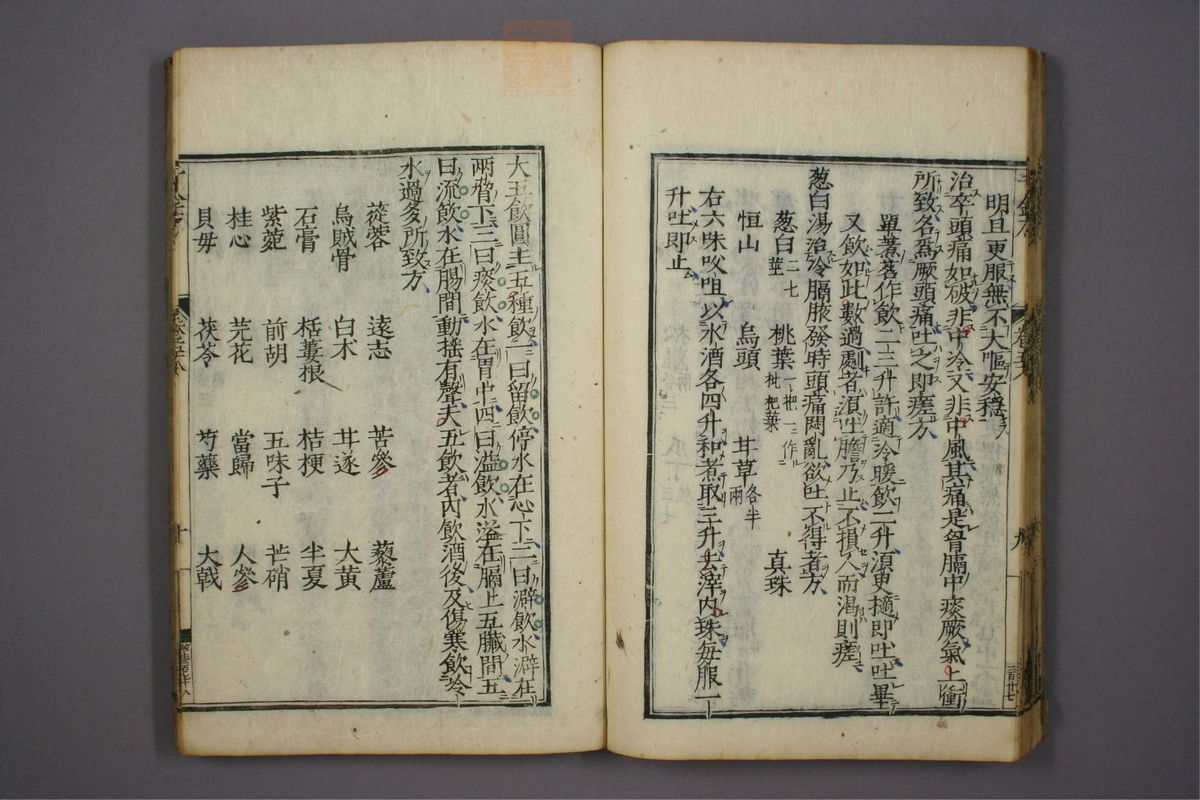 明旦更服無不大嘔安穩
治卒頭痛如破非中冷又非中風其痛是胷膈中痰厥氣上衝
所致名爲厥頭痛吐之即瘥方
單煮茗作飲二三升許適冷暖飲二升須臾擿即吐吐畢
又飲如此數過劇者須吐膽乃止不損人而渴則瘥
葱白湯治冷膈腋發時頭痛悶亂欲吐不得者方
葱白二七莖 桃葉一把一作枇杷葉 真珠
恒山 烏頭 甘草各半兩
右六味㕮咀以水酒各四升和煮取三升去滓內珠每服一
升吐即止
大五飲圓主五種飲一曰留飲停水在心下二曰澼飲水澼在
兩脅下三曰痰飲水在胃中四曰溢飲水溢在膈上五臟間五
曰流飲水在腸間動搖有聲夫五飲者內飲酒後及傷寒飲冷
水過多所致方
蓯蓉 遠志 苦參 藜蘆
烏賊骨 白朮 甘遂 大黃
石膏 栝蔞根 桔梗 半夏
紫菀 前胡 五味子 芒硝
桂心 芫花 當歸 人參
貝母 茯苓 芍藥 大戟
十